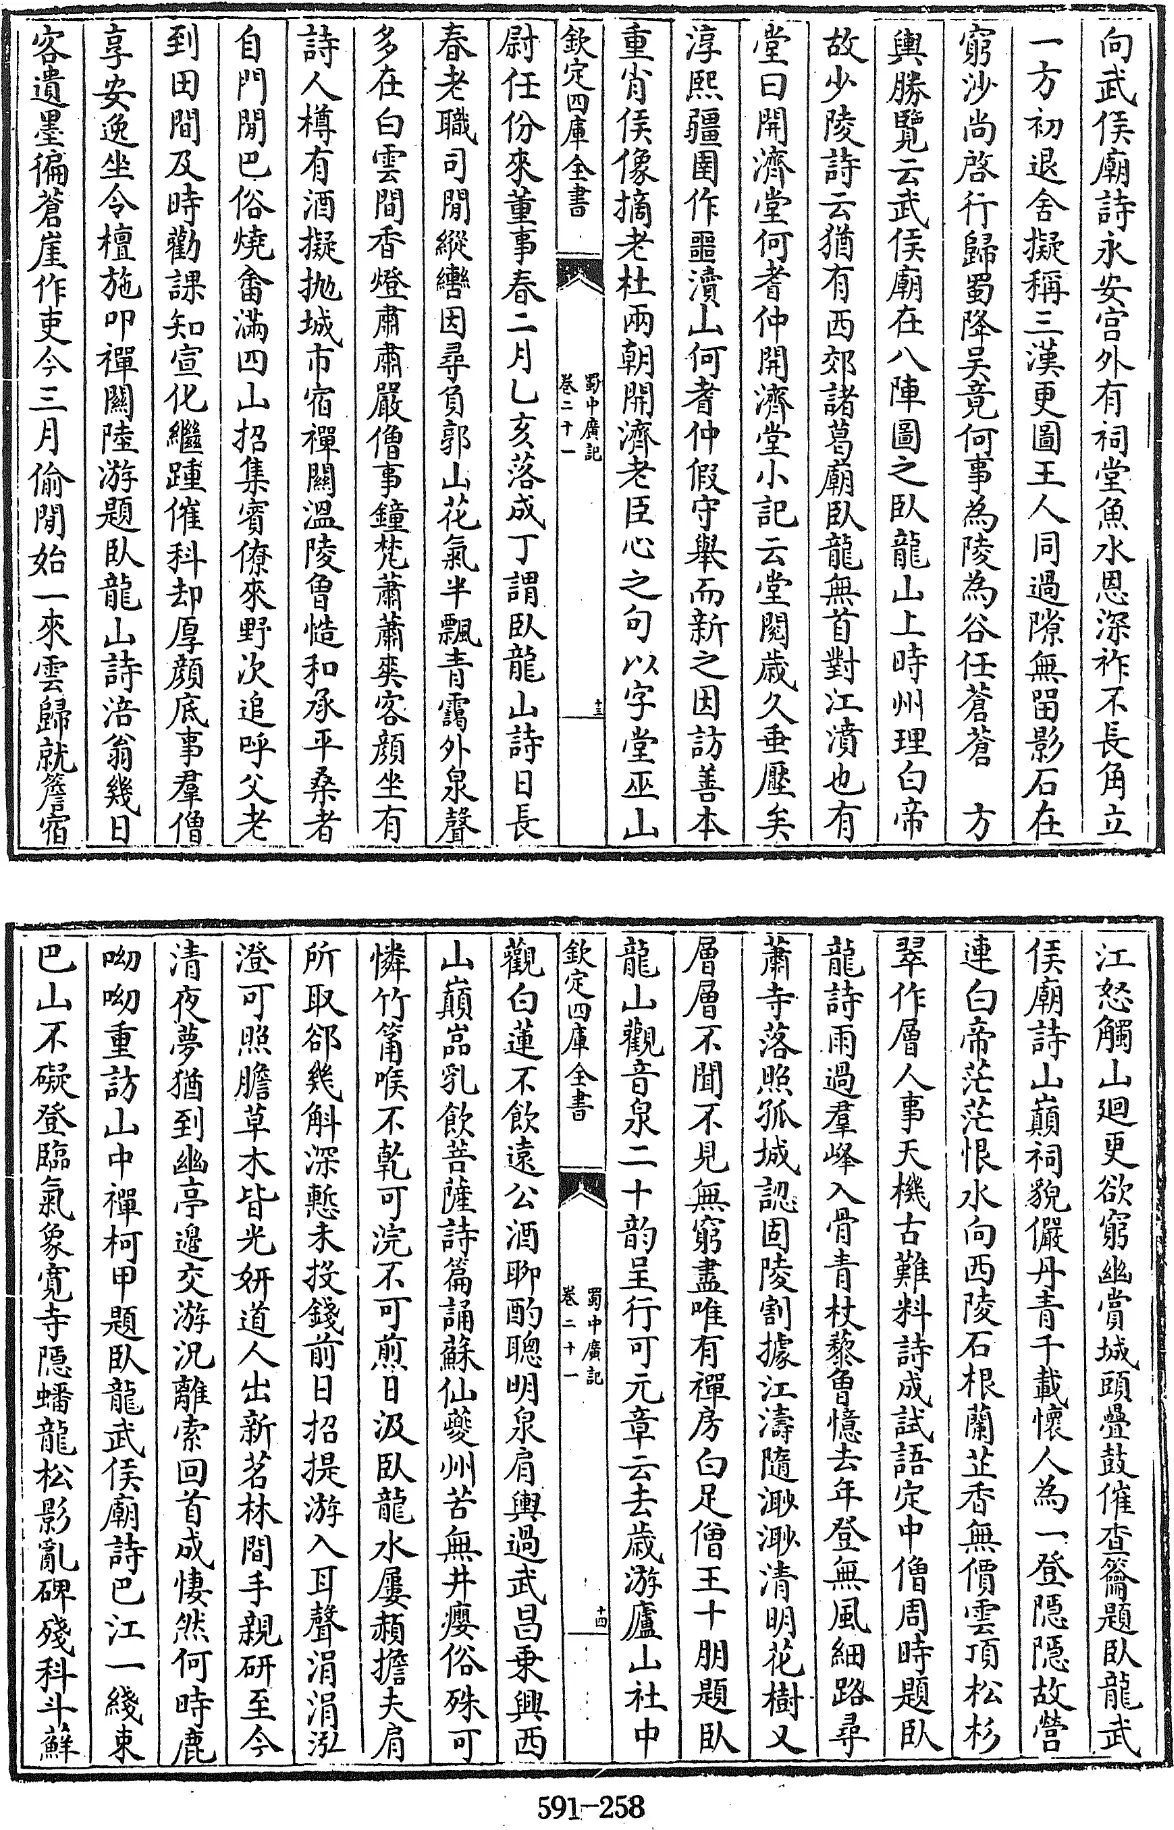 向武侯廟詩永安宫外有祠堂魚水恩深祚不長角立
一方初退舍擬稱三漢更圖王人同過隙無留影石在
窮沙尚啓行歸蜀降吴竟何事為陵為谷任蒼蒼　方
輿勝覽云武侯廟在八陣圖之卧龍山上時州理白帝
故少陵詩云猶有西郊諸葛廟卧龍無首對江濆也有
堂曰開濟堂何耆仲開濟堂小記云堂閲歲久垂壓矣
淳熙疆圉作噩瀆山何耆仲假守舉而新之因訪善本
重肖侯像摘老杜兩朝開濟老臣心之句以字堂巫山
欽定四庫全書
蜀中廣記
卷二十一
十三
尉任份來董事春二月乙亥落成丁謂卧龍山詩日長
春老職司閒縱轡因尋負郭山花氣半飄青靄外泉聲
多在白雲間香燈肅肅嚴僧事鐘梵蕭蕭爽客顔坐有
詩人樽有酒擬抛城市宿禪關溫陵曾慥和承平桑者
自門閒巴俗燒畬滿四山招集賓僚來野次追呼父老
到田間及時勸課知宣化繼踵催科却厚顔底事羣僧
享安逸坐令檀施叩禪關陸游題卧龍山詩涪翁幾日
客遺墨徧蒼崖作吏今三月偷閒始一來雲歸就簷宿
江怒觸山廻更欲窮幽賞城頭疊鼓催查籥題卧龍武
侯廟詩山巔祠貌儼丹青千載懷人為一登隱隱故營
連白帝茫茫恨水向西陵石根蘭芷香無價雲頂松杉
翠作層人事天機古難料詩成試語定中僧周時題卧
龍詩雨過羣峰入骨青杖藜曾憶去年登無風細路尋
蕭寺落照孤城認固陵割據江濤隨渺渺清明花樹又
層層不聞不見無窮盡唯有禪房白足僧王十朋題卧
龍山觀音泉二十韵呈行可元章云去歲游廬山社中
欽定四庫全書
蜀中廣記
卷二十一
十四
觀白蓮不飲遠公酒聊酌聰明泉肩輿過武昌乘興西
山巔嵓乳飲菩薩詩篇誦蘇仙夔州苦無井癭俗殊可
憐竹筩喉不乾可浣不可煎日汲卧龍水屢頳擔夫肩
所取郤幾斛深慙未投錢前日招提游入耳聲涓涓泓
澄可照膽草木皆光妍道人出新茗林間手親研至今
清夜夢猶到幽亭邉交游況離索回首成悽然何時鹿
呦呦重訪山中禪柯甲題卧龍武侯廟詩巴江一綫束
巴山不礙登臨氣象寛寺隠蟠龍松影亂碑殘科斗蘚
591-258